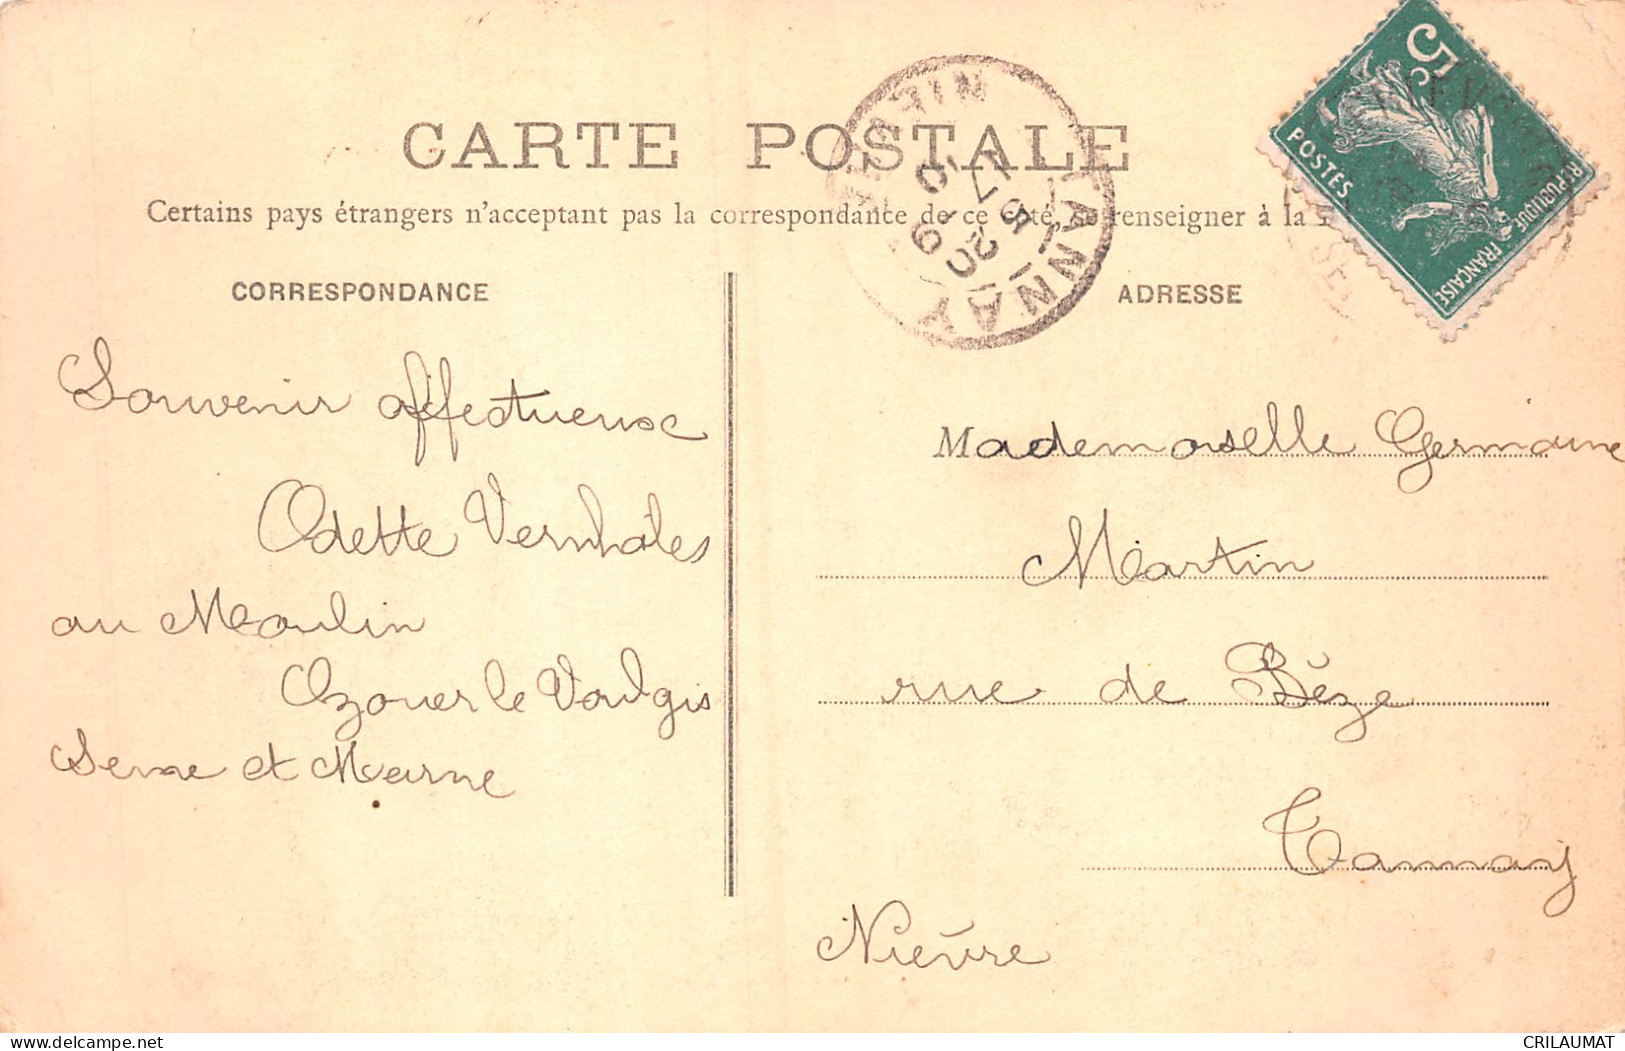 CARTE POSTALE
Certains pays étrangers n'acceptant pas la correspondance de ce côté, se renseigner à la
CORRESPONDANCE
Souvenir affectueuse
Odette Vernholes
au Moulin
Ozouer le Voulgis
Seine et Marne
ADRESSE
Mademoiselle Germaine
Martin
rue de Bèze
Tannay
Nièvre
TANNAY
NIEVRE
5c
POSTES
REPUBLIQUE FRANÇAISE
delcampe.net
CRILAUMAT